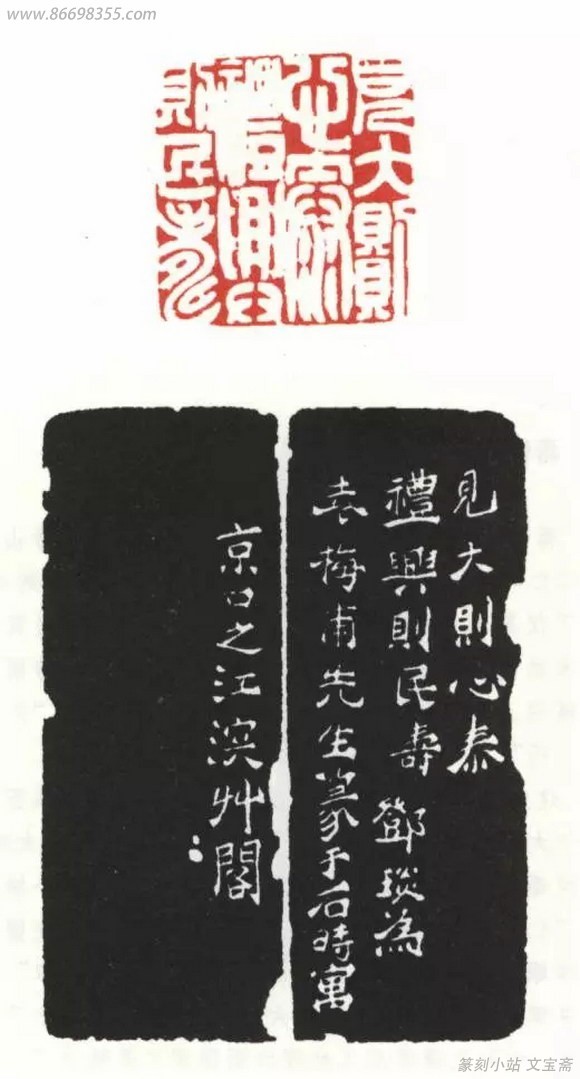 www.86698355.com
見大則
心泰
禮興
則民壽
見大則心泰
禮興則民壽 鄧琰為
袁梅甫先生篆于石時寓
京口之江濱艸閣
篆刻小站 文宝斋